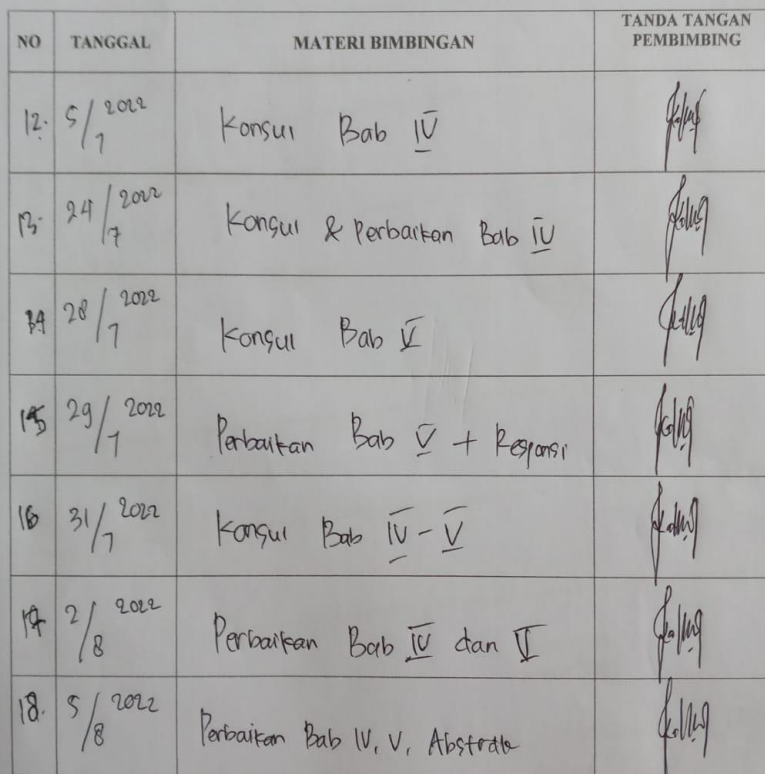 NO TANGGAL MATERI BIMBINGAN TANDA TANGAN PEMBIMBING
12. 5/7 2022 Konsul Bab IV
13. 24/7 2022 Konsul & Perbaikan Bab IV
14 28/7 2022 Konsul Bab V
15 29/7 2022 Perbaikan Bab V + Responsi
16 31/7 2022 Konsul Bab IV - V
17 2/8 2022 Perbaikan Bab IV dan V
18. 5/8 2022 Perbaikan Bab IV, V, Abstrak